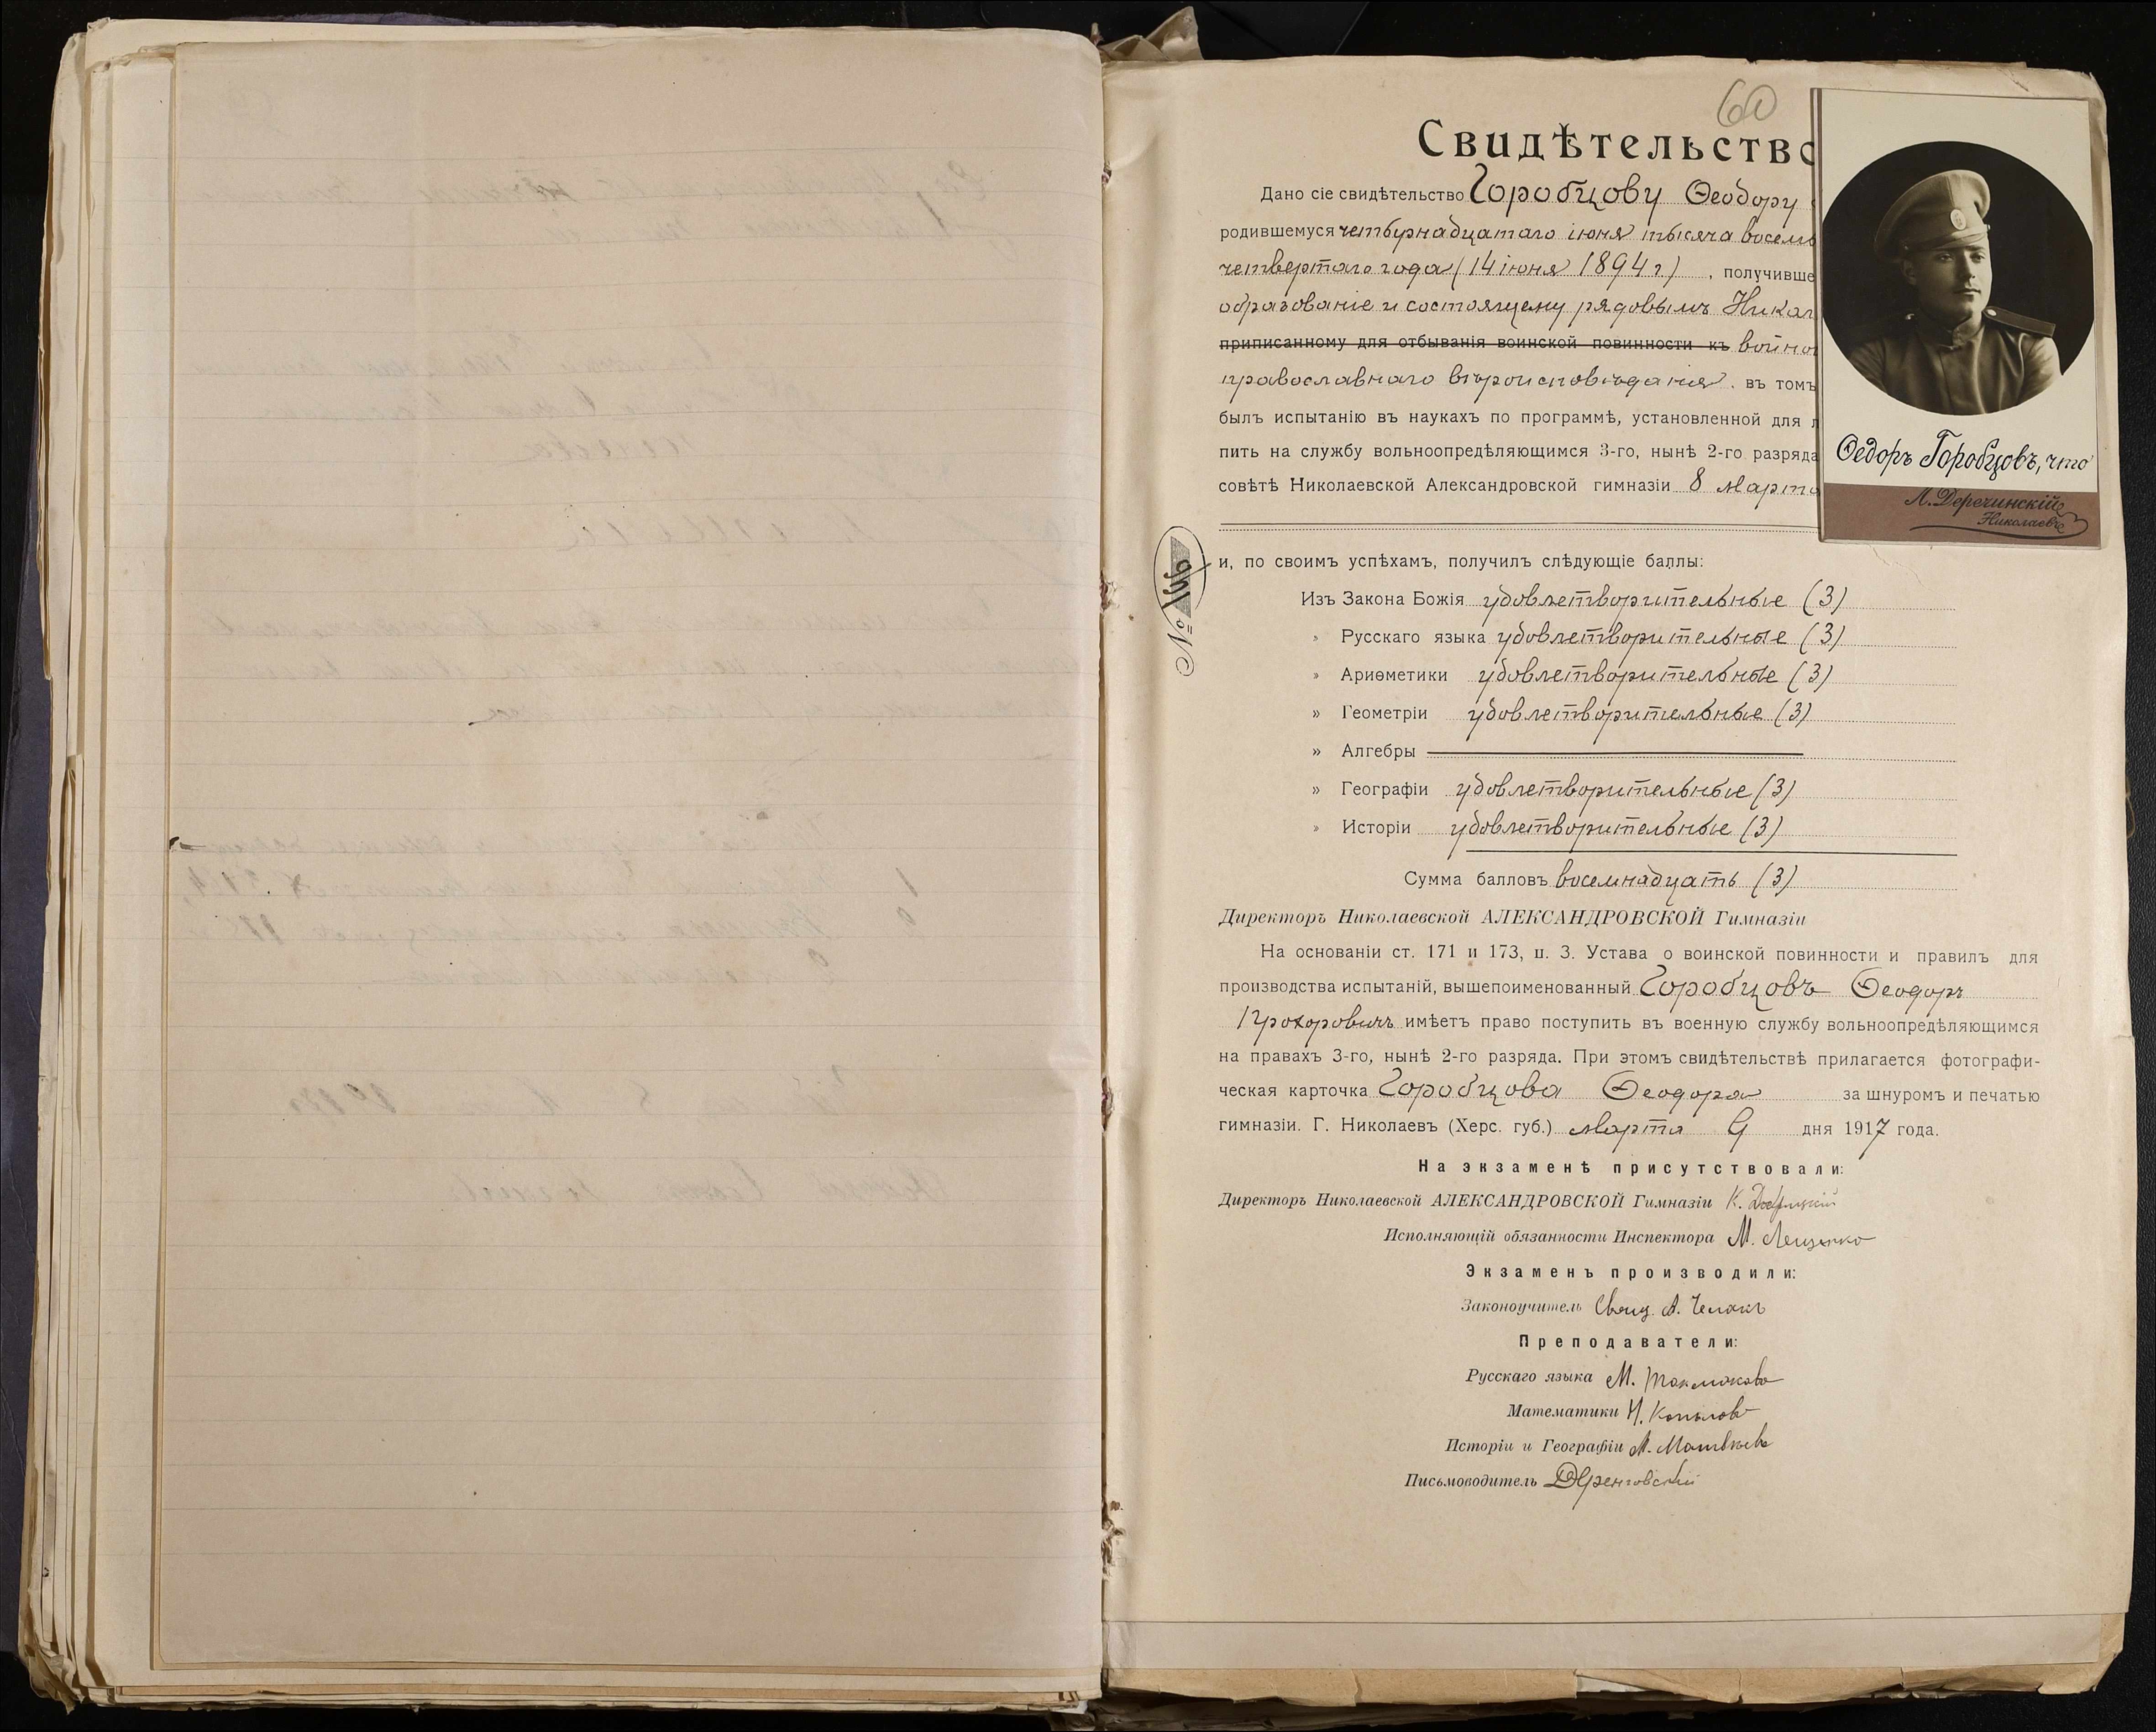 60
Свидѣтельство
Дано сіе свидѣтельство Горобцову Ѳеодору
родившемуся четырнадцатаго іюня тысяча восемь
четвертаго года (14 іюня 1894 г.) , получивше
образованіе и состоящему рядовымъ Никол
приписанному для отбыванія воинской повинности къ войно
православнаго вѣроисповѣданія. въ томъ
былъ испытанію въ наукахъ по программѣ, установленной для л
пить на службу вольноопредѣляющимся 3-го, нынѣ 2-го разряда
совѣтѣ Николаевской Александровской гимназіи 8 марта
Ѳедоръ Горобцовъ, что
Л. Деречинскій
Николаевъ
и, по своимъ успѣхамъ, получилъ слѣдующіе баллы:
Изъ Закона Божія удовлетворительные (3)
» Русскаго языка удовлетворительные (3)
» Ариѳметики удовлетворительные (3)
» Геометріи удовлетворительные (3)
» Алгебры
» Географіи удовлетворительные (3)
» Исторіи удовлетворительные (3)
Сумма балловъ восемнадцать (3)
Директоръ Николаевской АЛЕКСАНДРОВСКОЙ Гимназіи
На основаніи ст. 171 и 173, п. 3. Устава о воинской повинности и правилъ для
производства испытаній, вышепоименованный Горобцовъ Ѳеодоръ
Прохоровичъ имѣетъ право поступить въ военную службу вольноопредѣляющимся
на правахъ 3-го, нынѣ 2-го разряда. При этомъ свидѣтельствѣ прилагается фотографи-
ческая карточка Горобцова Ѳеодора за шнуромъ и печатью
гимназіи. Г. Николаевъ (Херс. губ.) марта 9 дня 1917 года.
На экзаменѣ присутствовали:
Директоръ Николаевской АЛЕКСАНДРОВСКОЙ Гимназіи К.
Исполняющій обязанности Инспектора М. Лещенко
Экзаменъ производили:
Законоучитель Свящ. А.
Преподаватели:
Русскаго языка М.
Математики Н. Копылов
Исторіи и Географіи А. Матвѣевъ
Письмоводитель
№